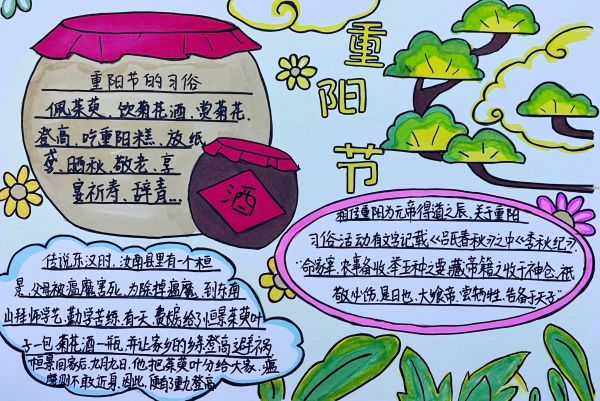 重阳节
重阳节的习俗
佩茱萸、饮菊花酒、赏菊花、
登高、吃重阳糕、放纸
鸢、晒秋、敬老、享
宴祈寿、辞青...
酒
相传重阳为元帝得道之辰，关于重阳
习俗活动有文字记载《吕氏春秋》之中《季秋纪》：
“命家宰，农事备收，举五种之要。藏帝籍之收于神仓，祗
敬必饬，是日也，大飨帝，尝牺牲，告备于天子”
传说东汉时，汝南县里有一个桓
景，父母被瘟魔害死，为除掉瘟魔，到东南
山拜师学艺，勤学苦练，有一天，费长房给了桓景茱萸叶
子一包，菊花酒一瓶，并让家乡的乡亲登高避祸
桓景回家后，九月九日，他把茱萸叶分给大家，瘟
魔则不敢近身，因此，